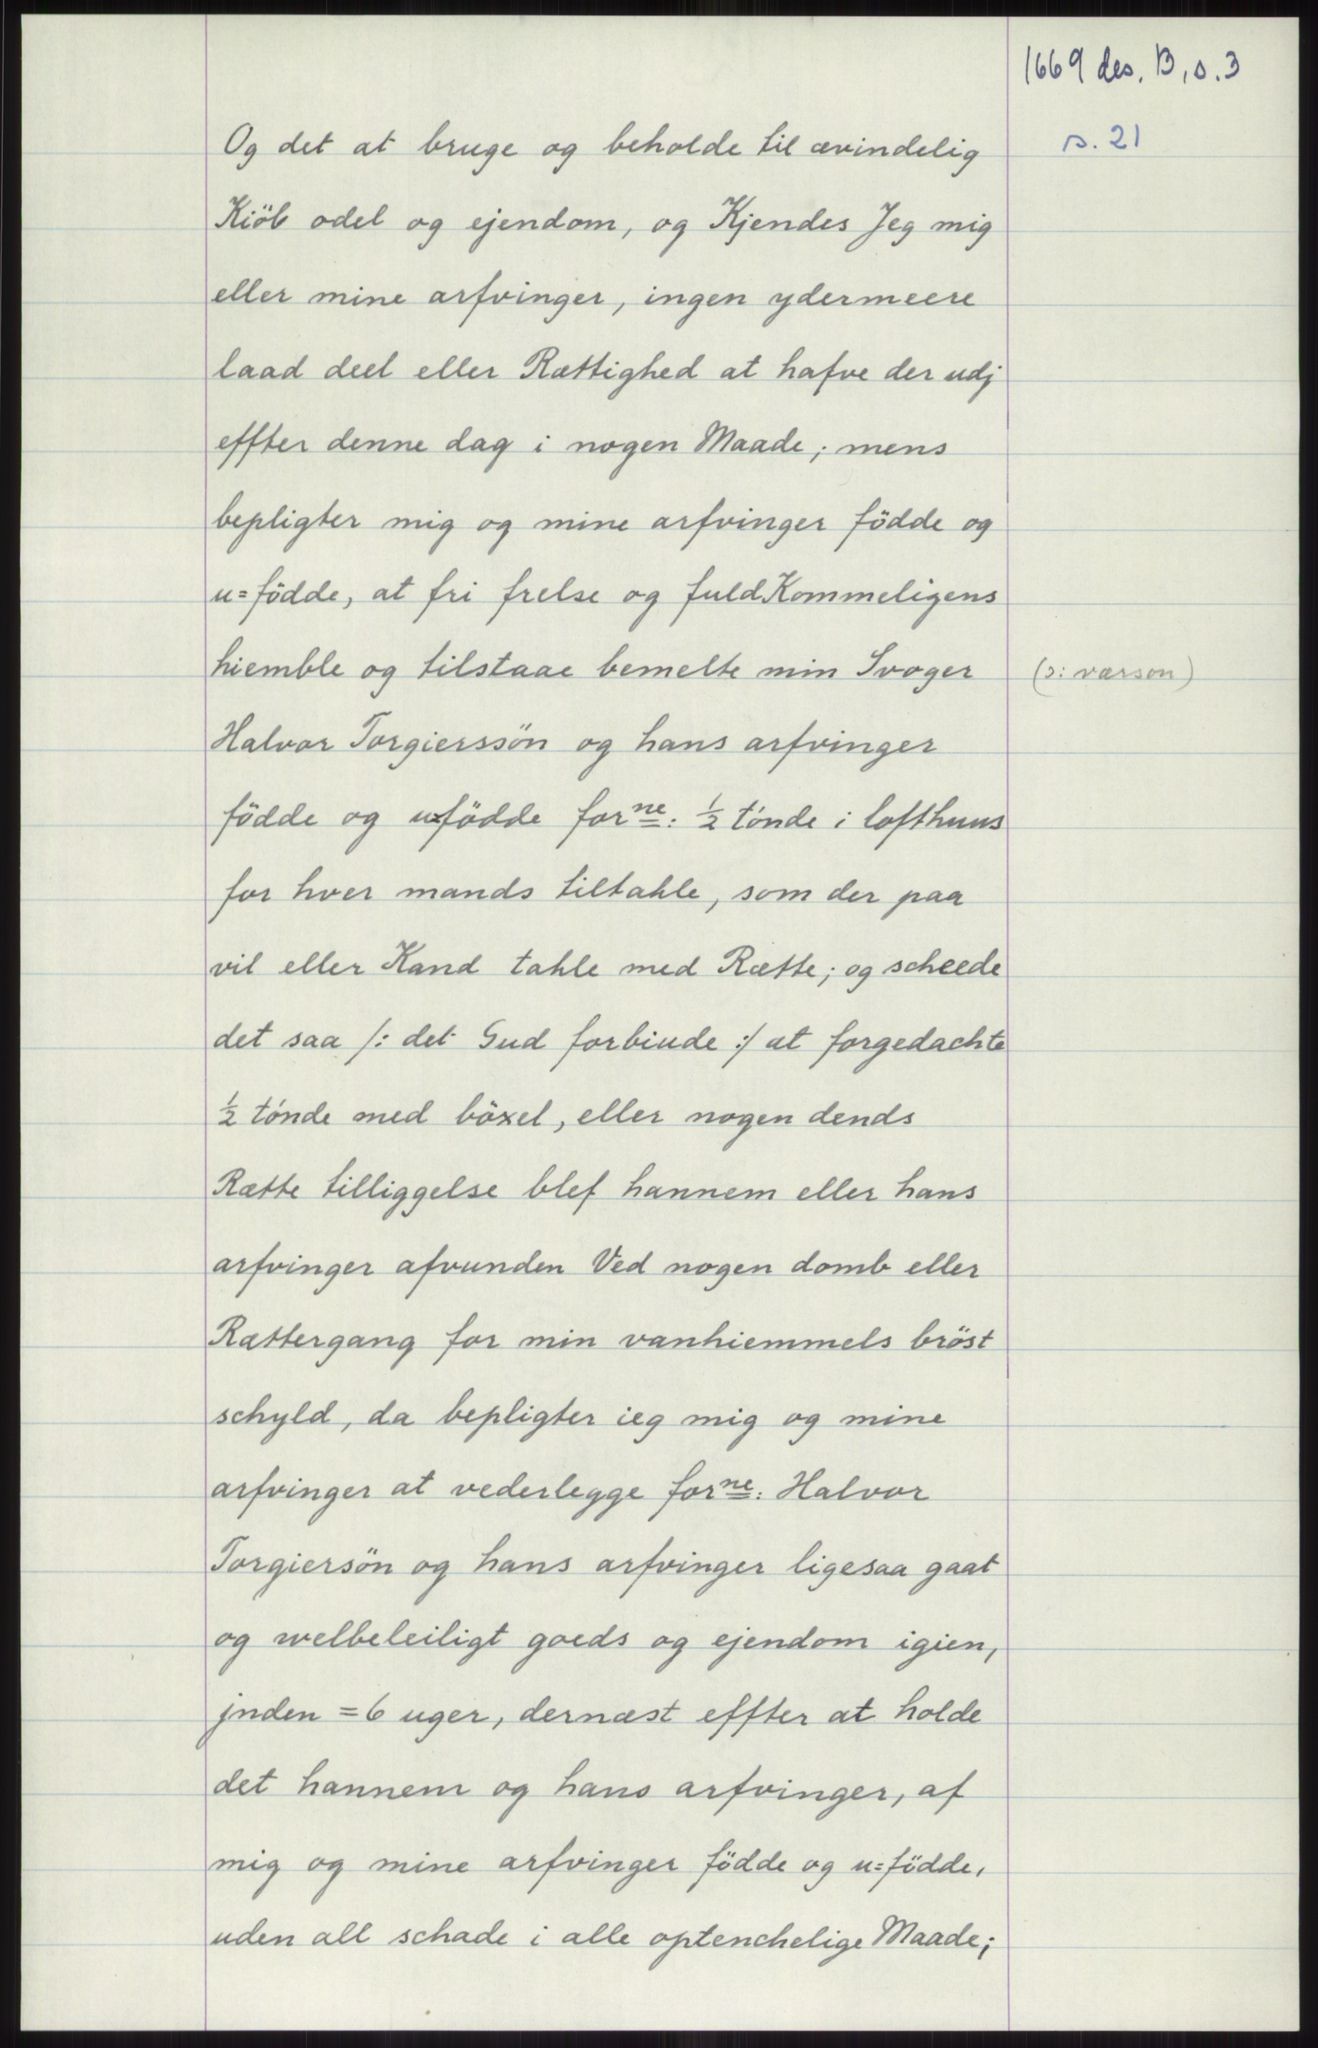 1669 des. B, s. 3
s. 21
Og det at bruge og beholde til ævindelig
Kiöb odel og ejendom, og Kjendes Jeg mig
eller mine arfvinger, ingen ydermeere
laad deel eller Rættighed at hafve der udj
effter denne dag i nogen Maade; mens
bepligter mig og mine arfvinger födde og
u=födde, at fri frelse og fuldKommeligens
hiemble og tilstaae bemelte min Svoger
(ɔ: værson)
Halvor Torgierssön og hans arfvinger
födde og u=födde forne: 1/2 tónde i lofthuus
for hver mands tiltahle, som der paa
vil eller Kand tahle med Rætte; og scheede
det saa /: det Gud forbiude :/ at forgedachte
1/2 tónde med böxel, eller nogen dends
Rætte tilliggelse blef hannem eller hans
arfvinger afvunden Ved nogen domb eller
Rættergang for min vanhiemmels bröst
schyld, da bepligter ieg mig og mine
arfvinger at vederlegge forne: Halvor
Torgiersön og hans arfvinger ligesaa gaat
og welbeleiligt goeds og ejendom igien,
jnden = 6 uger, dernæst effter at holde
det hannem og hans arfvinger, af
mig og mine arfvinger födde og u=födde,
uden all schade i alle optenchelige Maade;